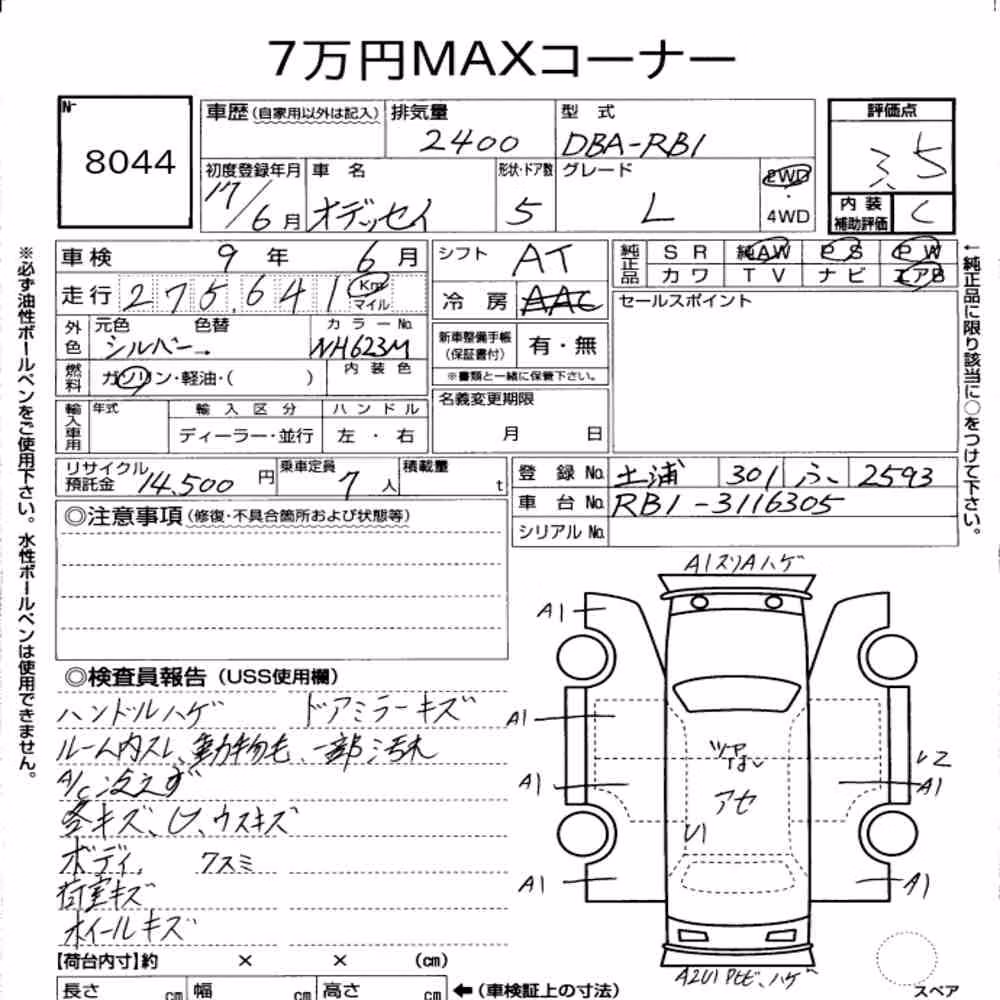 7万円MAXコーナー
No 8044
車歴 (自家用以外は記入) 排気量 2400 型式 DBA-RB1 評価点 3.5
初度登録年月 17/6月 車名 オデッセイ 形状・ドア数 5 グレード L 2WD・4WD 内装補助評価 C
車検 9年 6月 シフト AT
純正品 SR 純AW PS PW
カワ TV ナビ エアB
走行 275,641 Km マイル 冷房 AAC
セールスポイント
外色 元色 色替 シルバー カラーNo. NH623M
新車整備手帳(保証書付) 有・無
※書類と一緒に保管下さい。
燃料 ガソリン・軽油・( ) 内装色
名義変更期限 月 日
輸入車用 年式 輸入区分 ハンドル
ディーラー・並行 左・右
リサイクル預託金 14,500円 乗車定員 7人 積載量 t
登録No. 土浦 301 ふ 2593
車台No. RB1-3116305
シリアルNo.
◎注意事項(修復・不具合箇所および状態等)
◎検査員報告(USS使用欄)
ハンドルハゲ ドアミラーキズ
ルーム内スレ、動物毛、一部汚れ
A/C冷えず
各キズ、U、ウスキズ
ボディ、フスミ
荷室キズ
ホイールキズ
【荷台内寸】約 × × (cm)
長さ cm 幅 cm 高さ cm ←(車検証上の寸法)
※必ず油性ボールペンをご使用下さい。水性ボールペンは使用できません。
←純正品に限り該当に○をつけて下さい。
A1スリAハゲ
A1
A1
A1
A1
ツヤなし
アセ
U1
U2
A1
A1
A2U1 PヒビハゲA
スペア